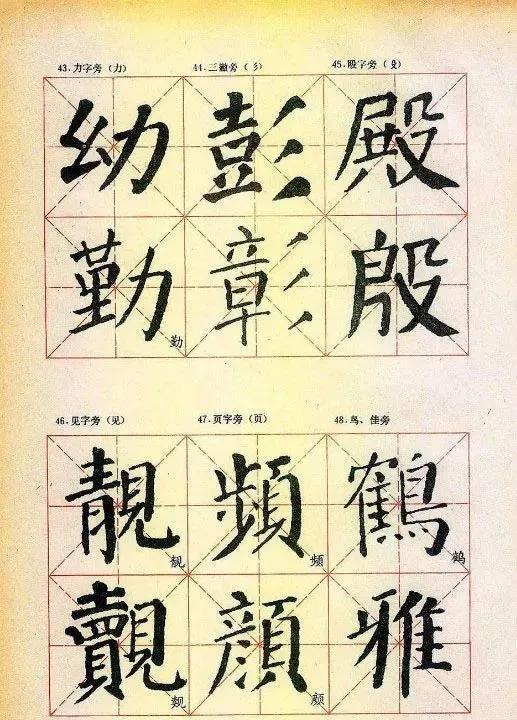 43.力字旁（力） 44.三撇旁（彡） 45.殳字旁（殳）
幼 彭 殿
勤 勤 彰 殷
46.见字旁（见） 47.页字旁（页） 48.鸟、佳旁
靚 靓 頻 频 鶴 鹤
覿 觌 顔 颜 雅